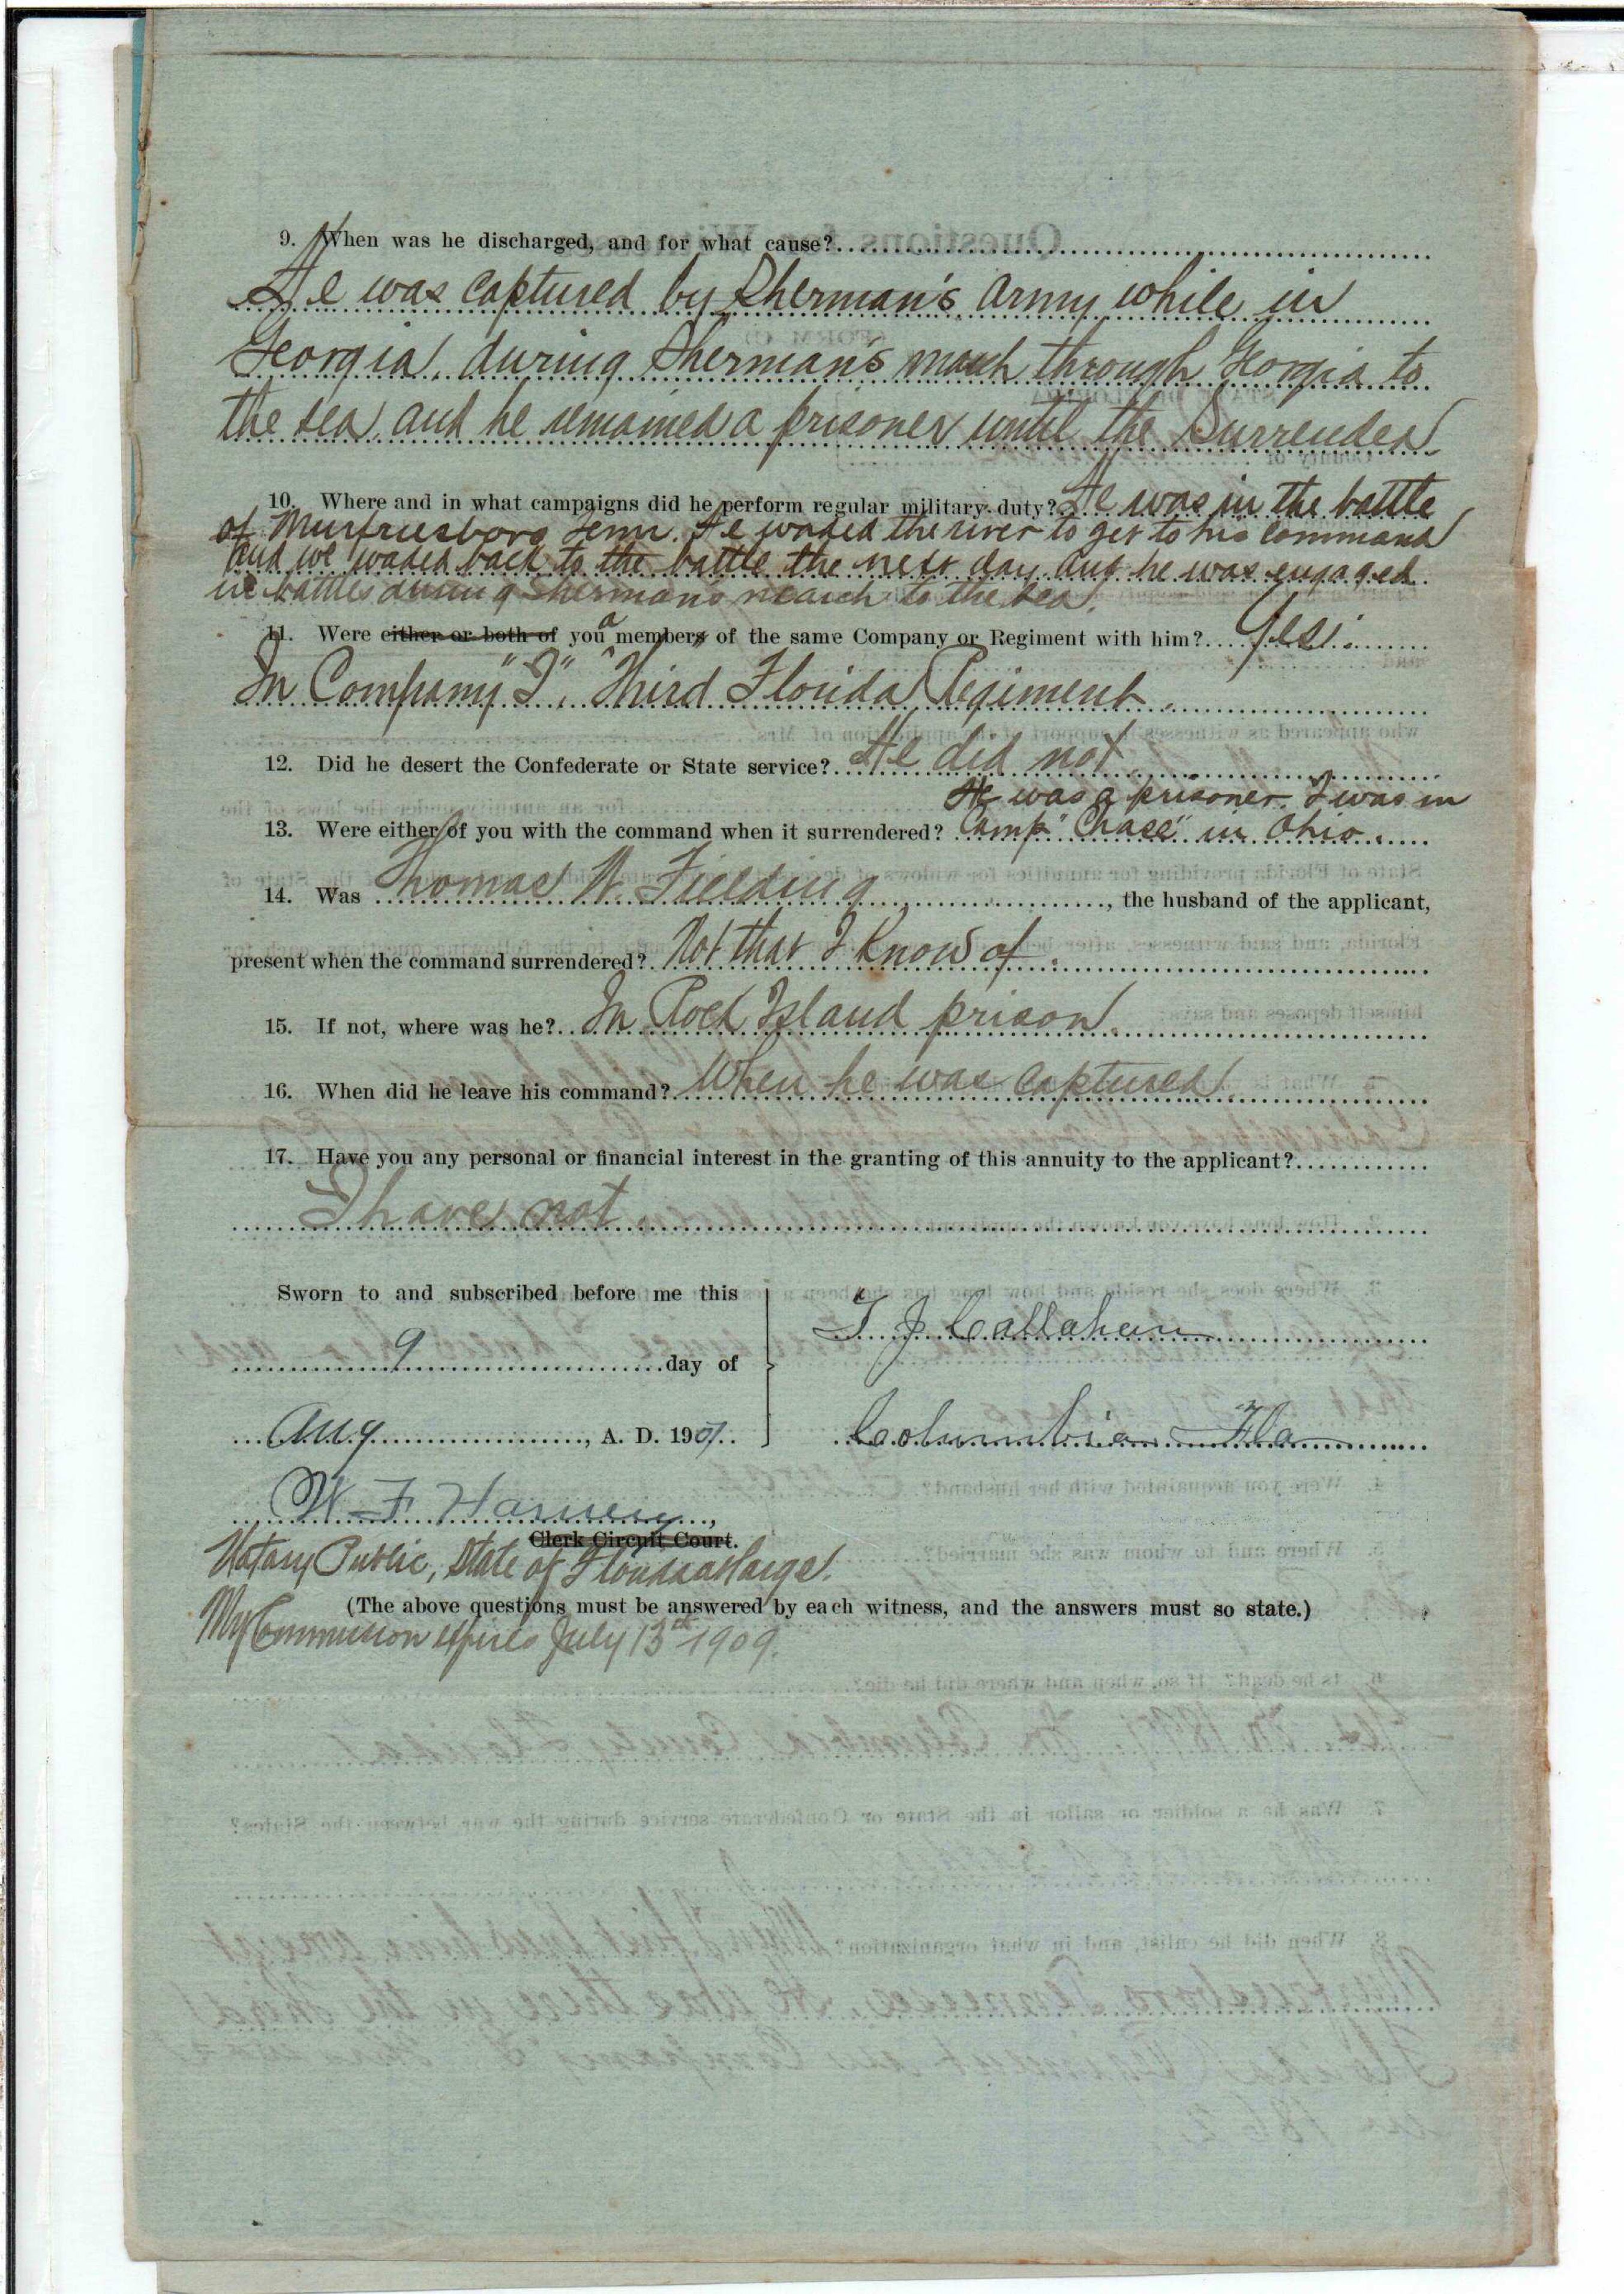 9. When was he discharged, and for what cause?
He was captured by Sherman's army while in
Georgia, during Sherman's march through Georgia to
the sea, and he remained a prisoner until the Surrender.
10. Where and in what campaigns did he perform regular military duty? He was in the battle
of Murfriesboro Tenn. He waded the river to get to his command
and we waded back to the battle the next day and he was engaged
in battles during Shermans march to the Sea.
11. Were either or both of you a members of the same Company or Regiment with him? Yes.
In Company "I", Third Florida Regiment.
12. Did he desert the Confederate or State service? He did not
He was a prisoner. I was in
13. Were either of you with the command when it surrendered? Camp "Chase" in Ohio.
14. Was Thomas W. Fielding, the husband of the applicant,
present when the command surrendered? Not that I know of.
15. If not, where was he? In Rock Island prison.
16. When did he leave his command? When he was captured.
17. Have you any personal or financial interest in the granting of this annuity to the applicant?
I have not
Sworn to and subscribed before me this
9 day of
Aug, A. D. 1907.
T. J. Callahan
Columbia Fla
W F
Clerk Circuit Court.
Notary Public, State of Florida at large.
(The above questions must be answered by each witness, and the answers must so state.)
My Commission expires July 13th 1909.